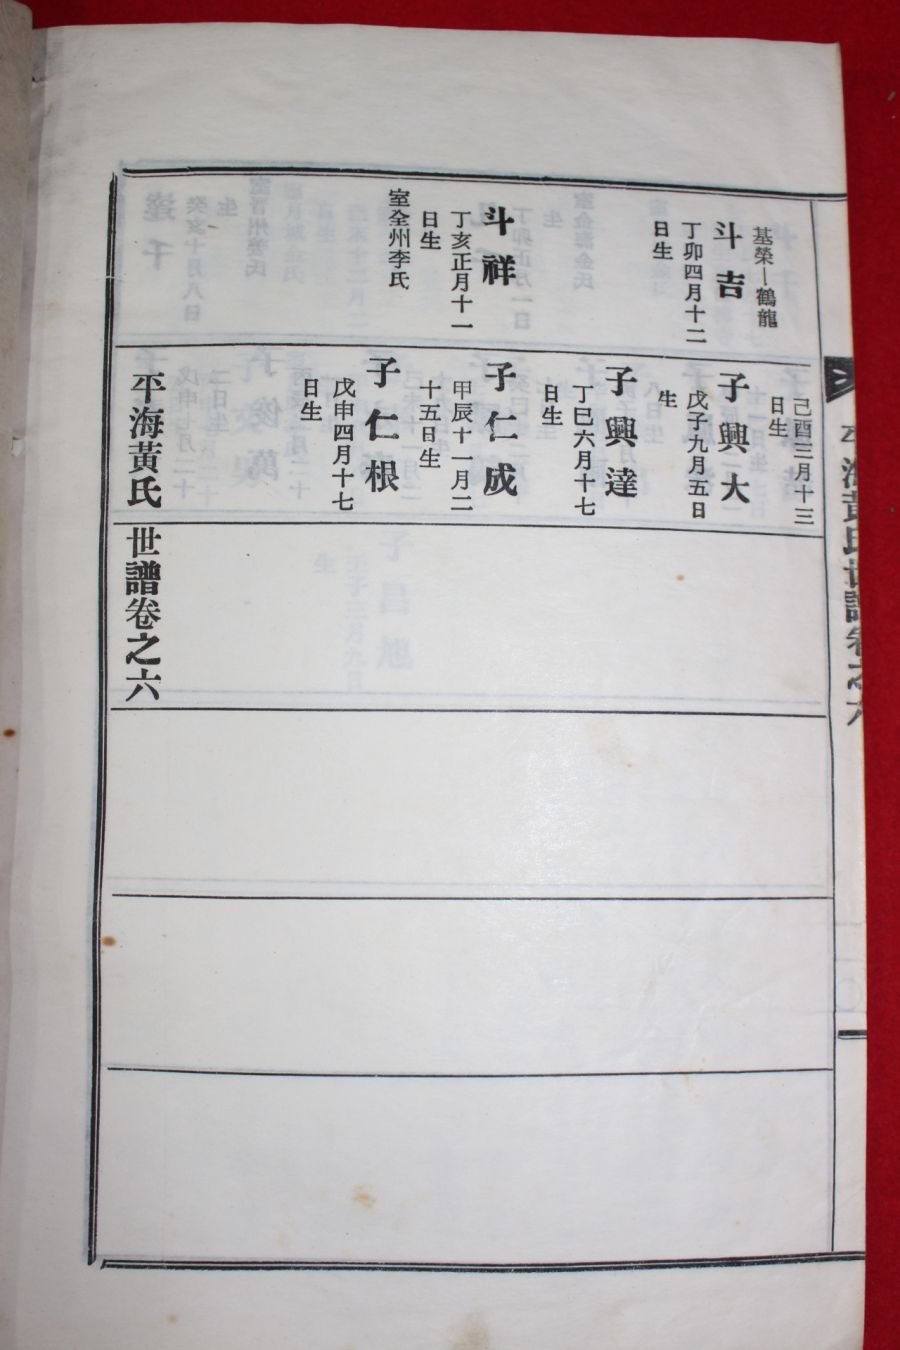 平海黃氏世譜卷之六
基榮ー鶴龍
斗吉
丁卯四月十二
日生
斗祥
丁亥正月十一
日生
室全州李氏
己酉三月十三
日生
子興大
戊子九月五日
生
子興達
丁巳六月十七
日生
子仁成
甲辰十一月二
十五日生
子仁根
戊申四月十七
日生
平海黃氏世譜卷之六